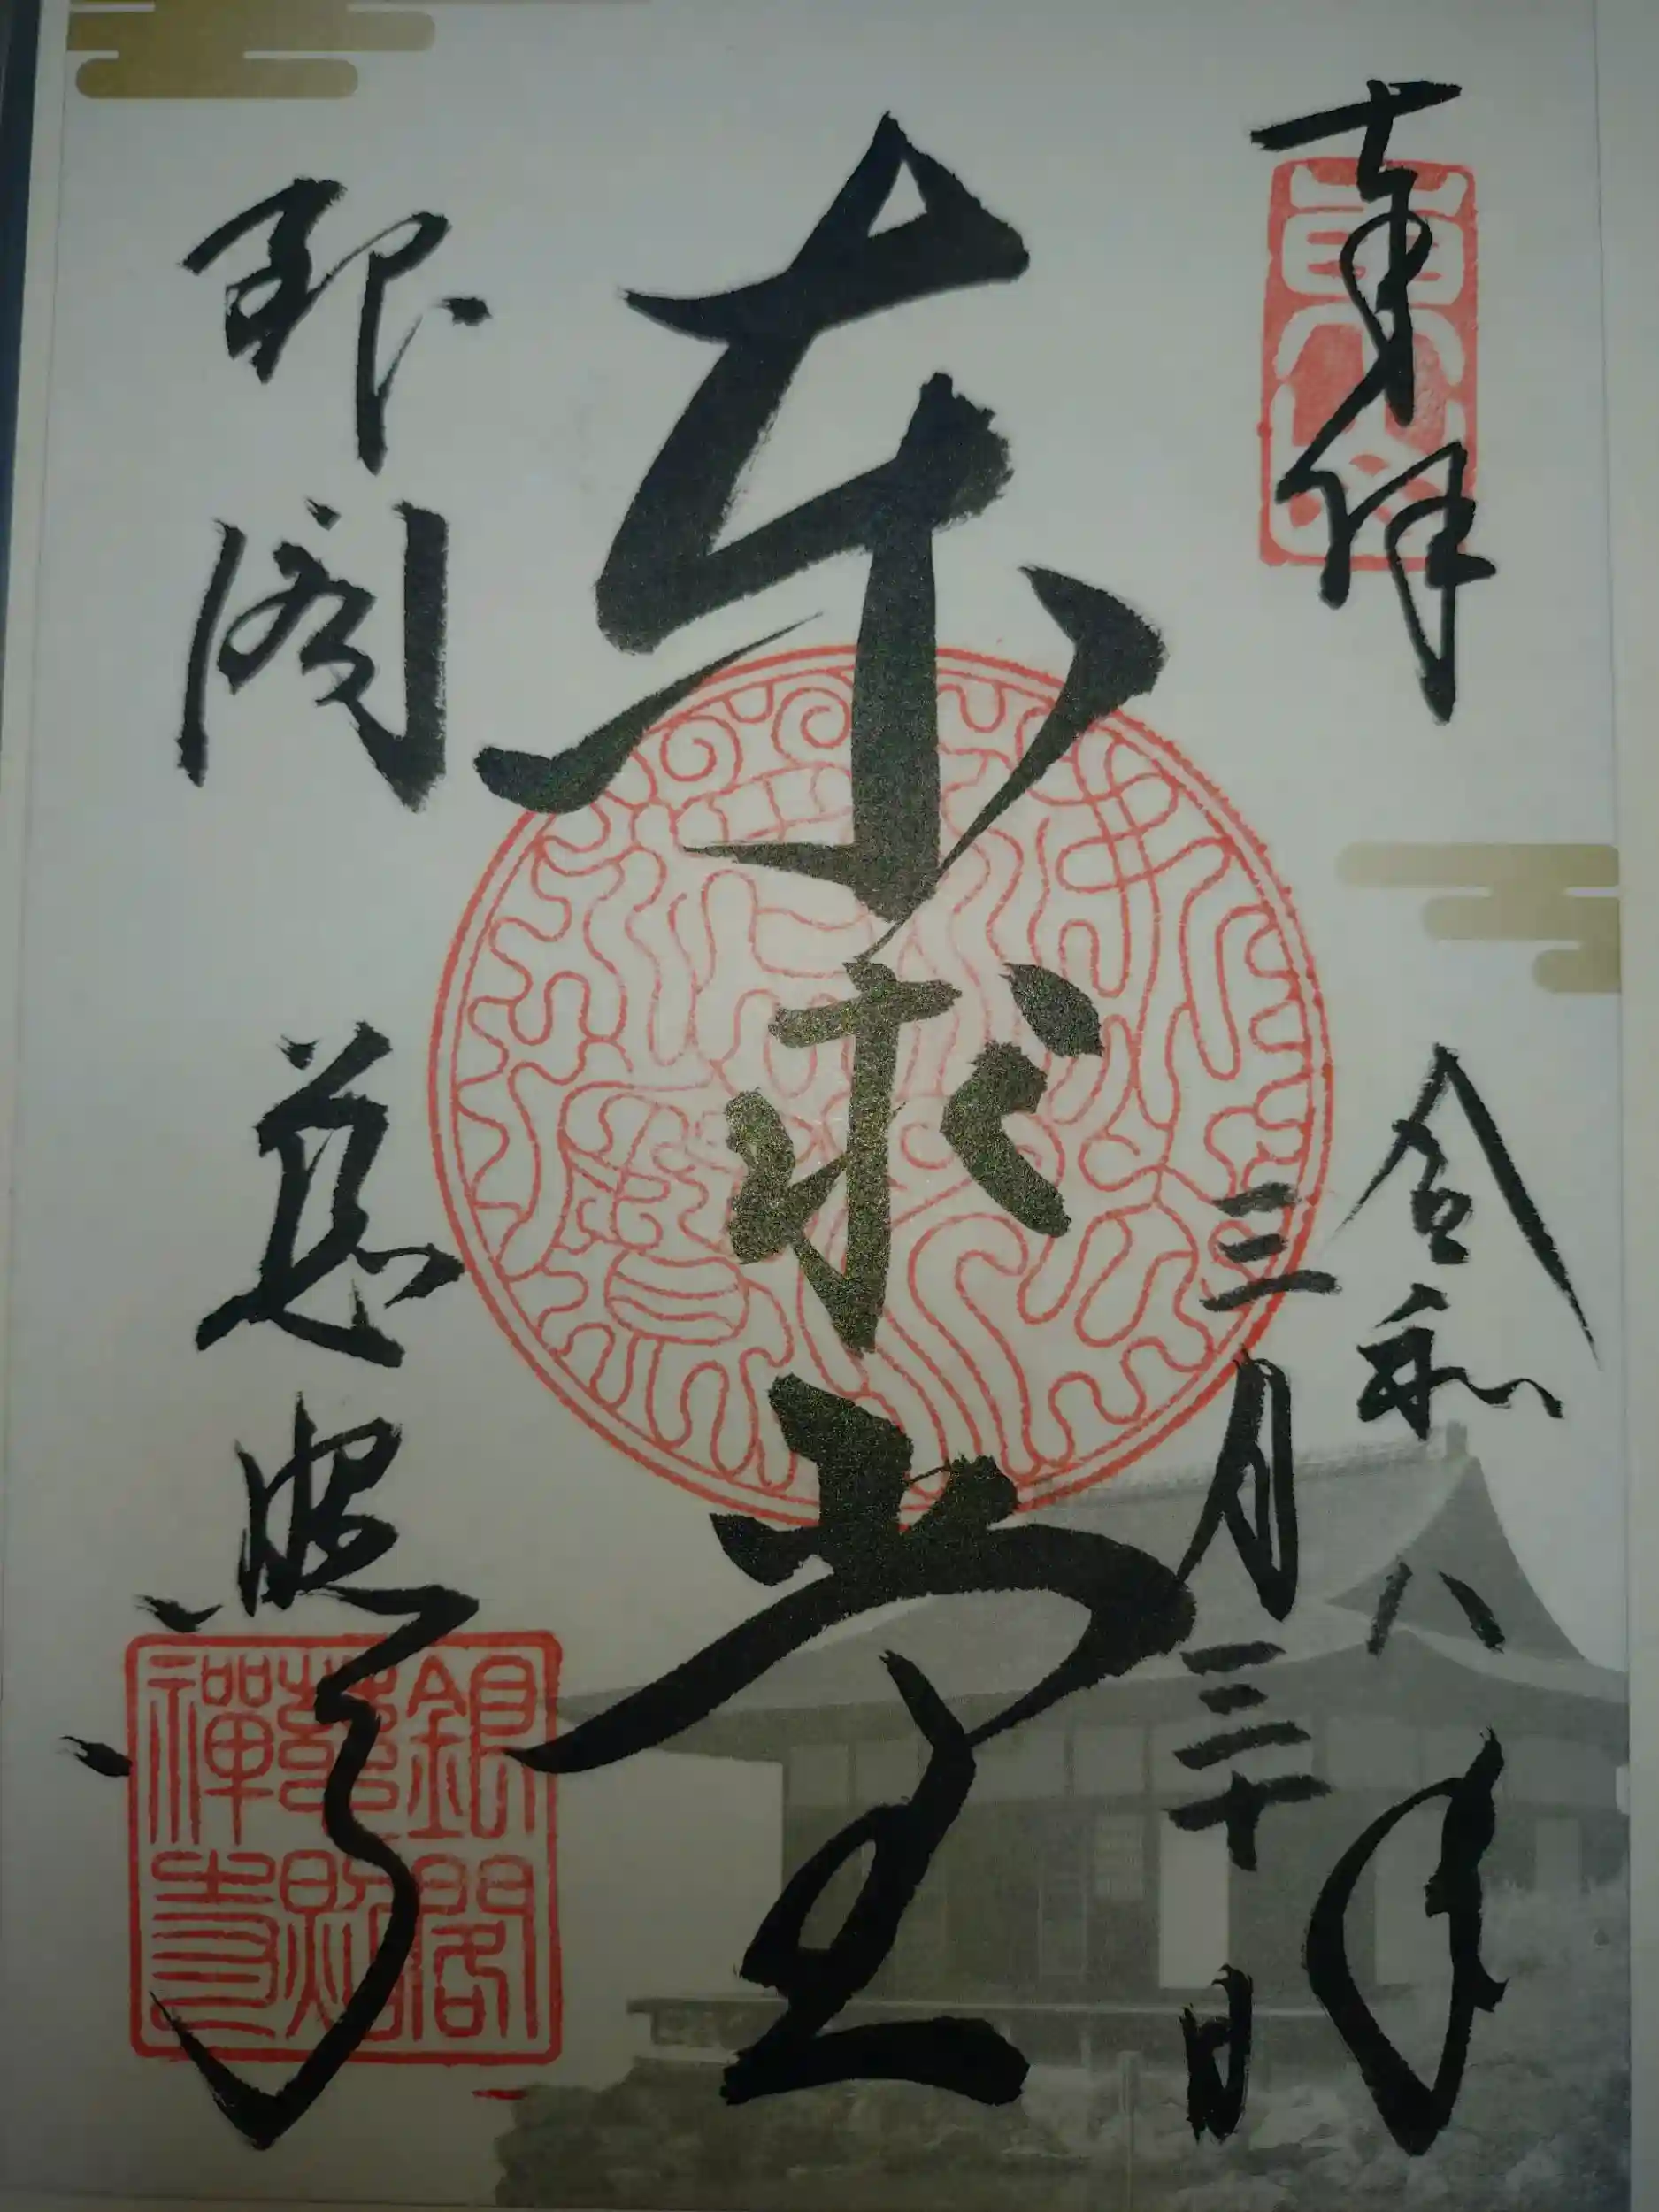 奉拝
東山
令和八年
三月三十日
東求堂
銀閣 慈照寺
銀閣
慈照
禅寺